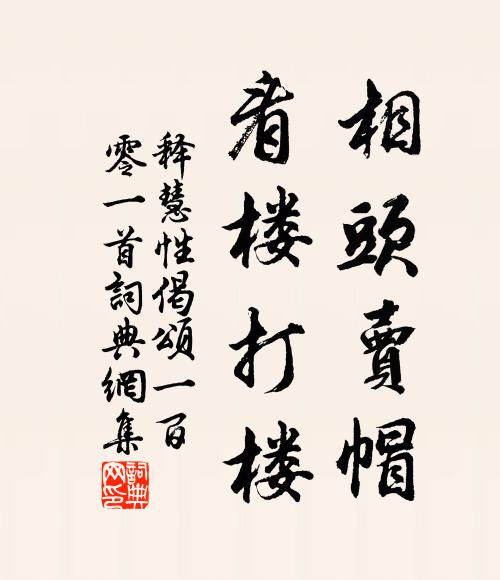 相頭賣帽
看楼打楼
释慧性偈頌一百
零一首詞典網集
詞典
网印